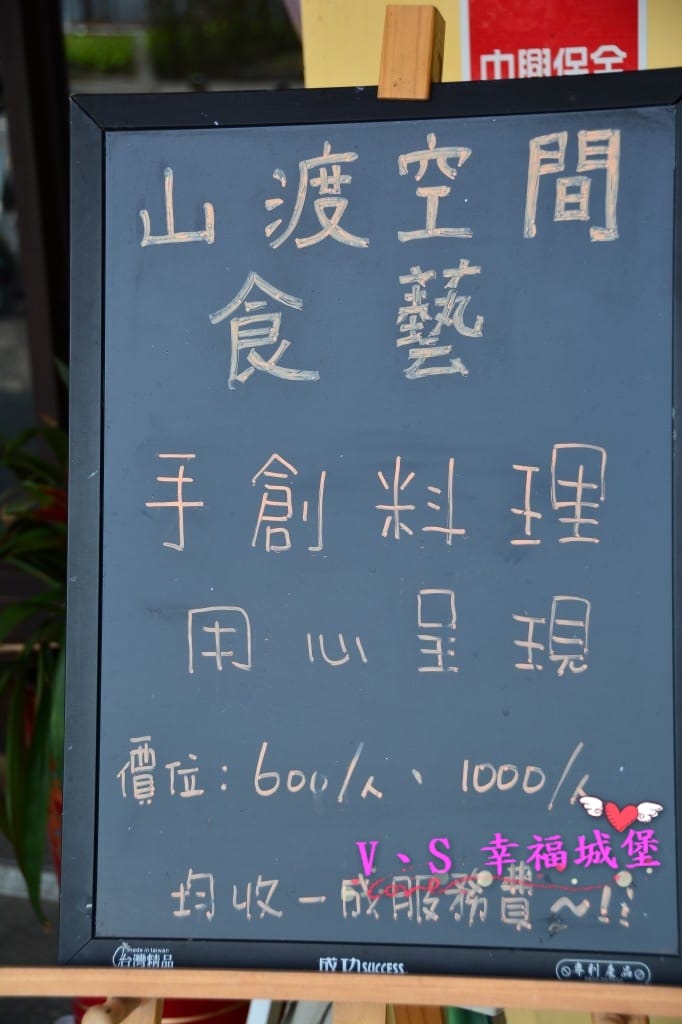 中興保全
山渡空間
食藝
手創料理
用心呈現
價位：600/人、1000/人
V、S 幸福城堡
均收一成服務費～!!
made in taiwan
台灣精品
成功SUCCESS.
專利產品